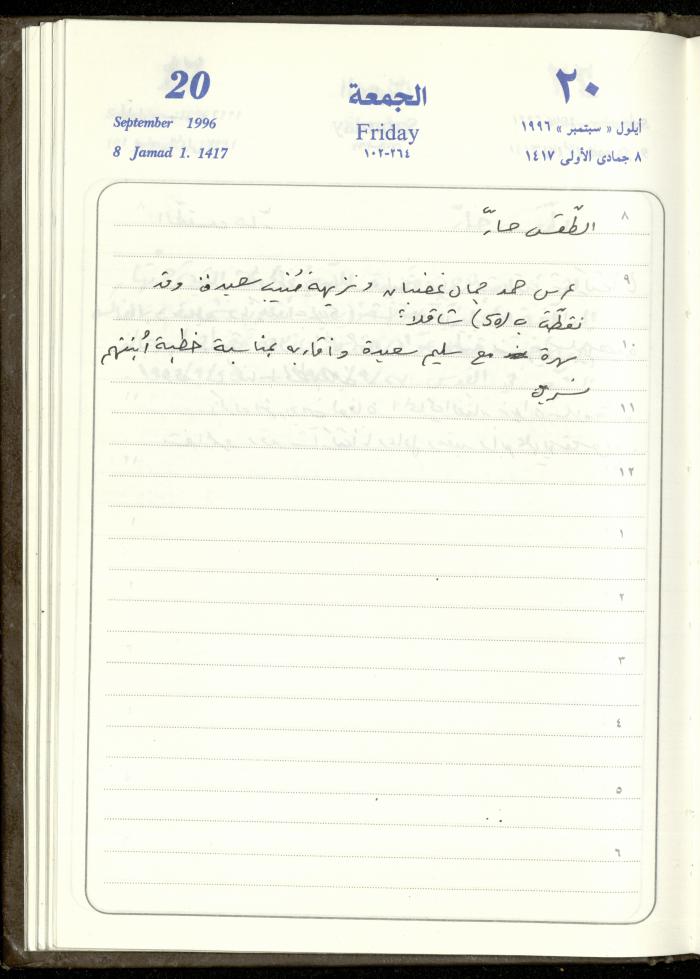 20
٢٠
الجمعة
September 1996
Friday
أيلول « سبتمبر » ١٩٩٦
8 Jamad 1. 1417
٢٦٤-١٠٢
٨ جمادى الأولى ١٤١٧
٨
الطّقس حارّ
٩
عرس حمد جمال غضبان ونزيهة مُنيب سعيدة وقد
نقطّة ب (50) شاقلاً؛
١٠
سهرة مع سليم سعيدة وأقاربه بمناسبة خطبة أبنتهم
١١
١٢
١
٢
٣
٤
٥
٦